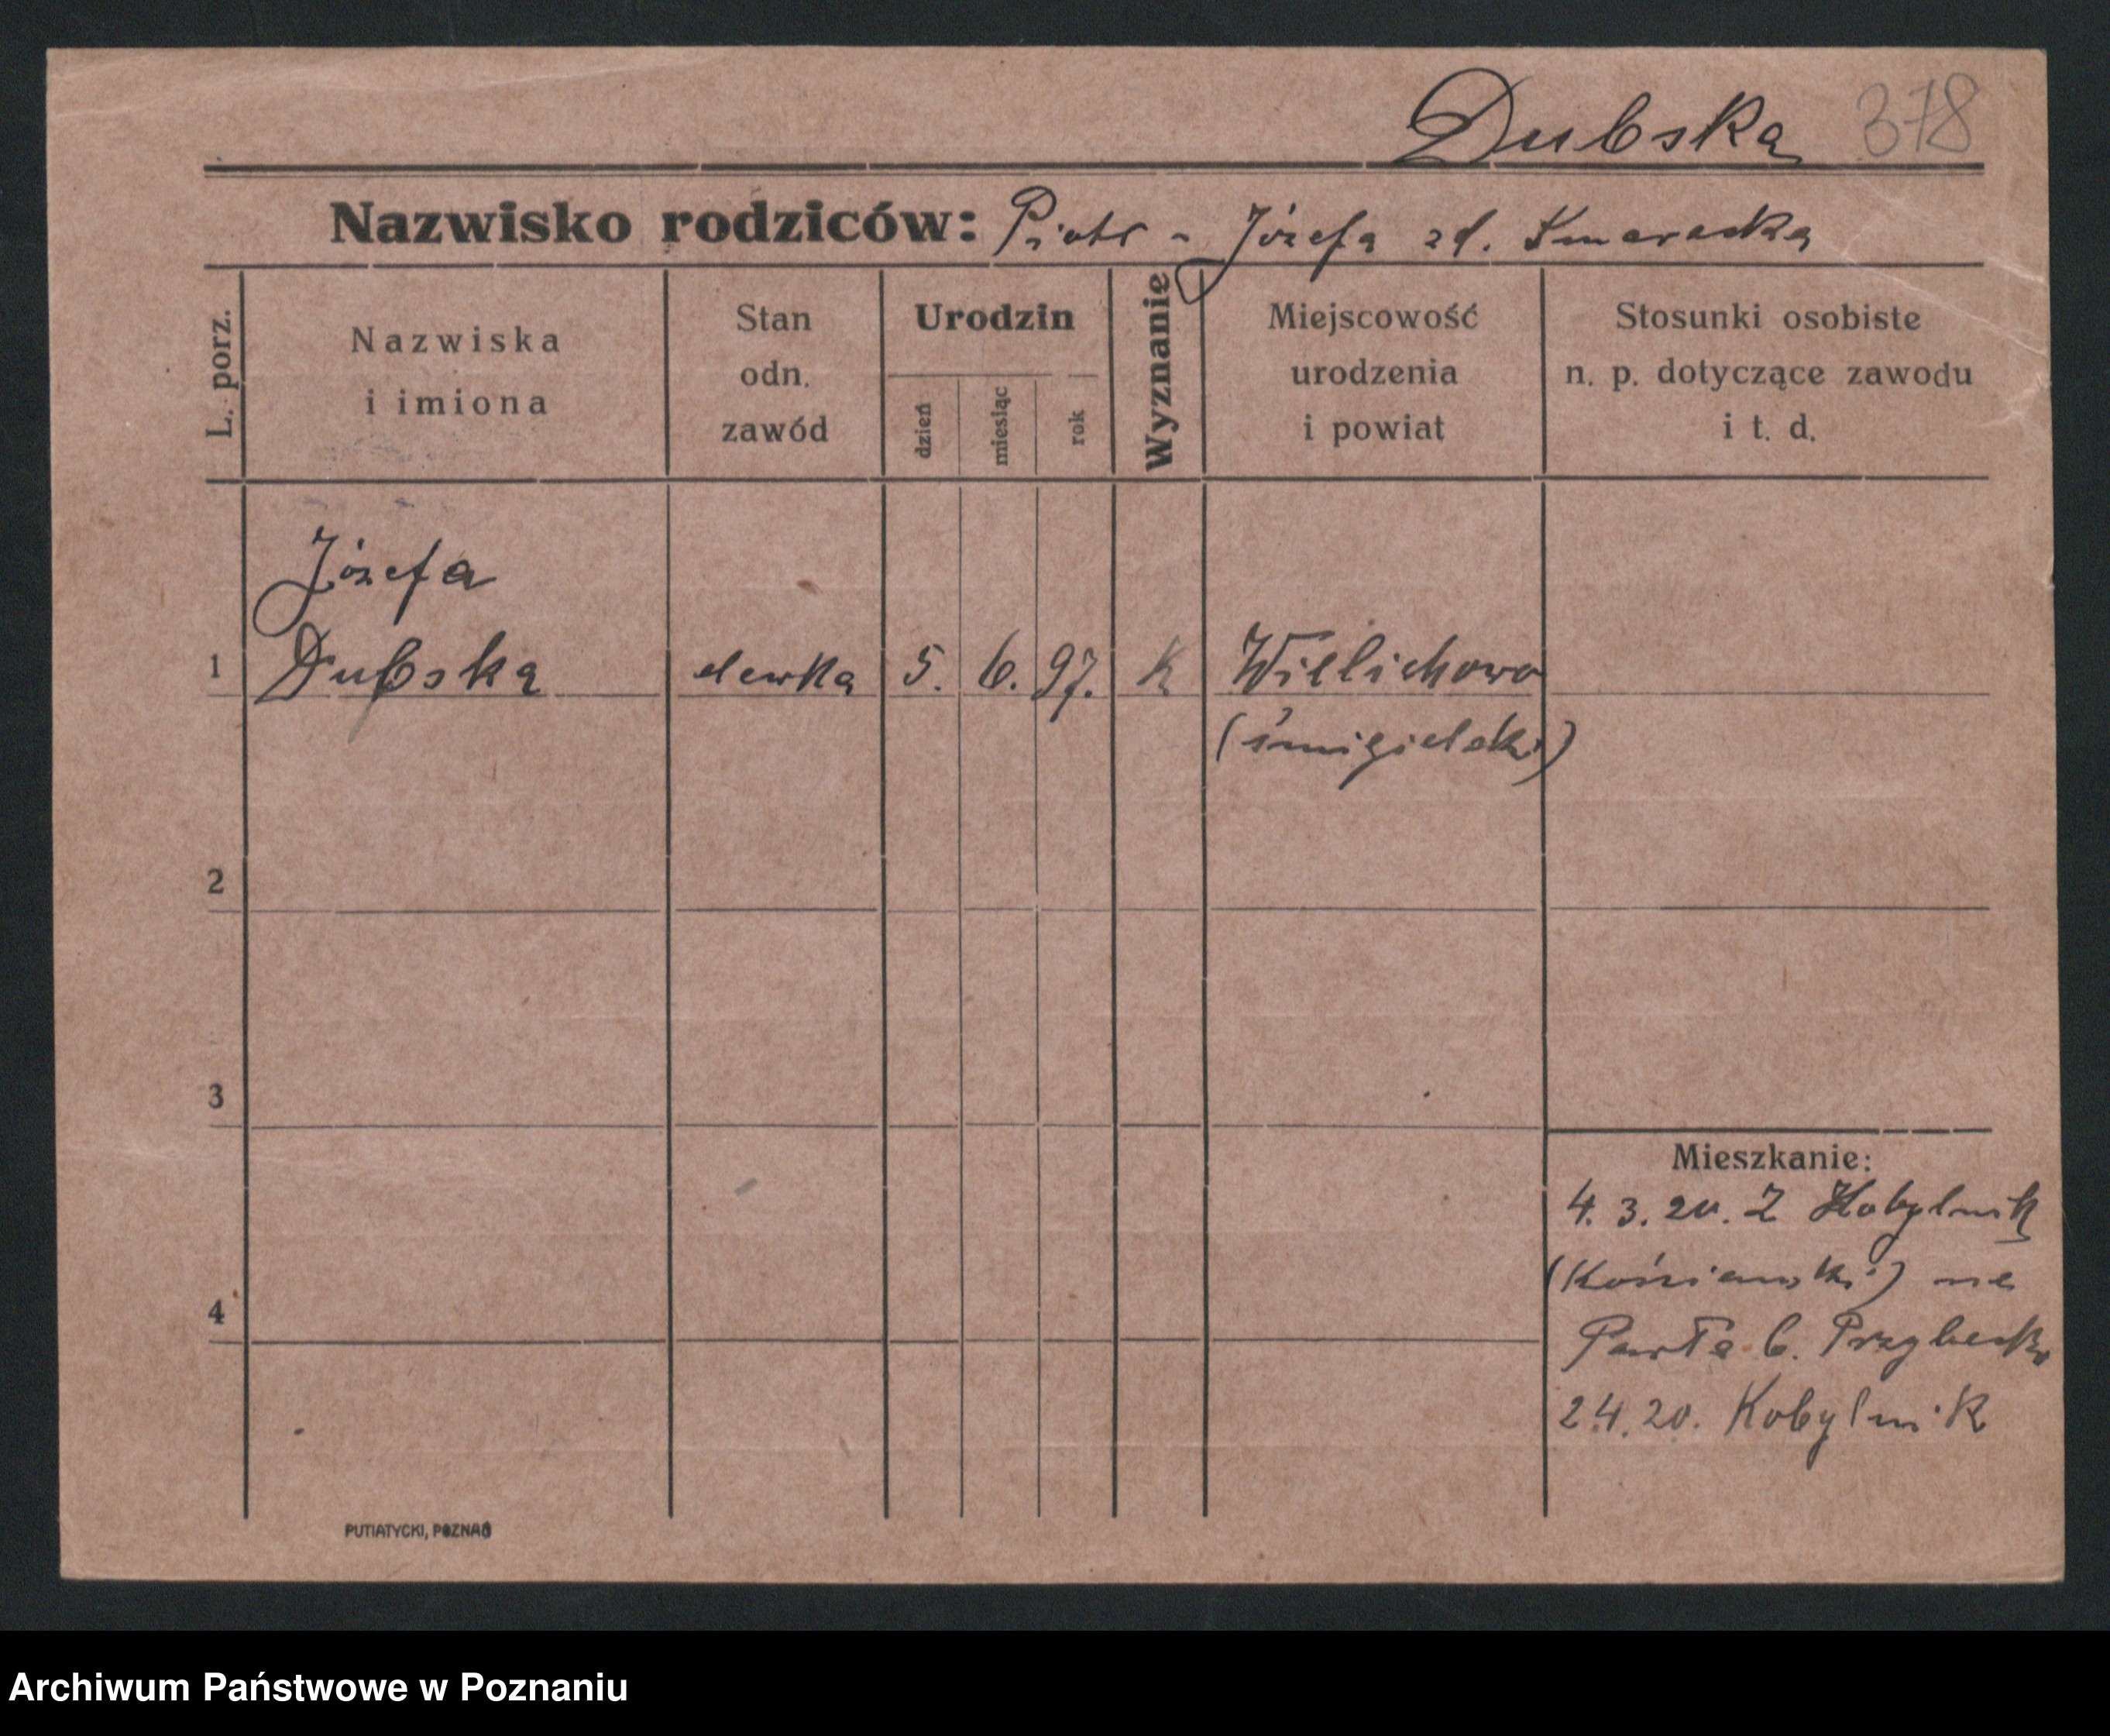 Dubska 378
Nazwisko rodziców: Piotr - Józefa zd.
L. porz.
Nazwiska
i imiona
Stan
odn.
zawód
Urodzin
dzień
miesiąc
rok
Wyznanie
Miejscowość
urodzenia
i powiat
Stosunki osobiste
n. p. dotyczące zawodu
i t. d.
Józefa
1 Dubska elewka 5. 6. 97. K Wielichowo
(śmigielski)
2
3
4
Mieszkanie:
4. 3. 20. Z Kobylnik
(Kościański) na
Pawła 6.
2.4.20. Kobylnik
PUTIATYCKI, POZNAŃ
Archiwum Państwowe w Poznaniu